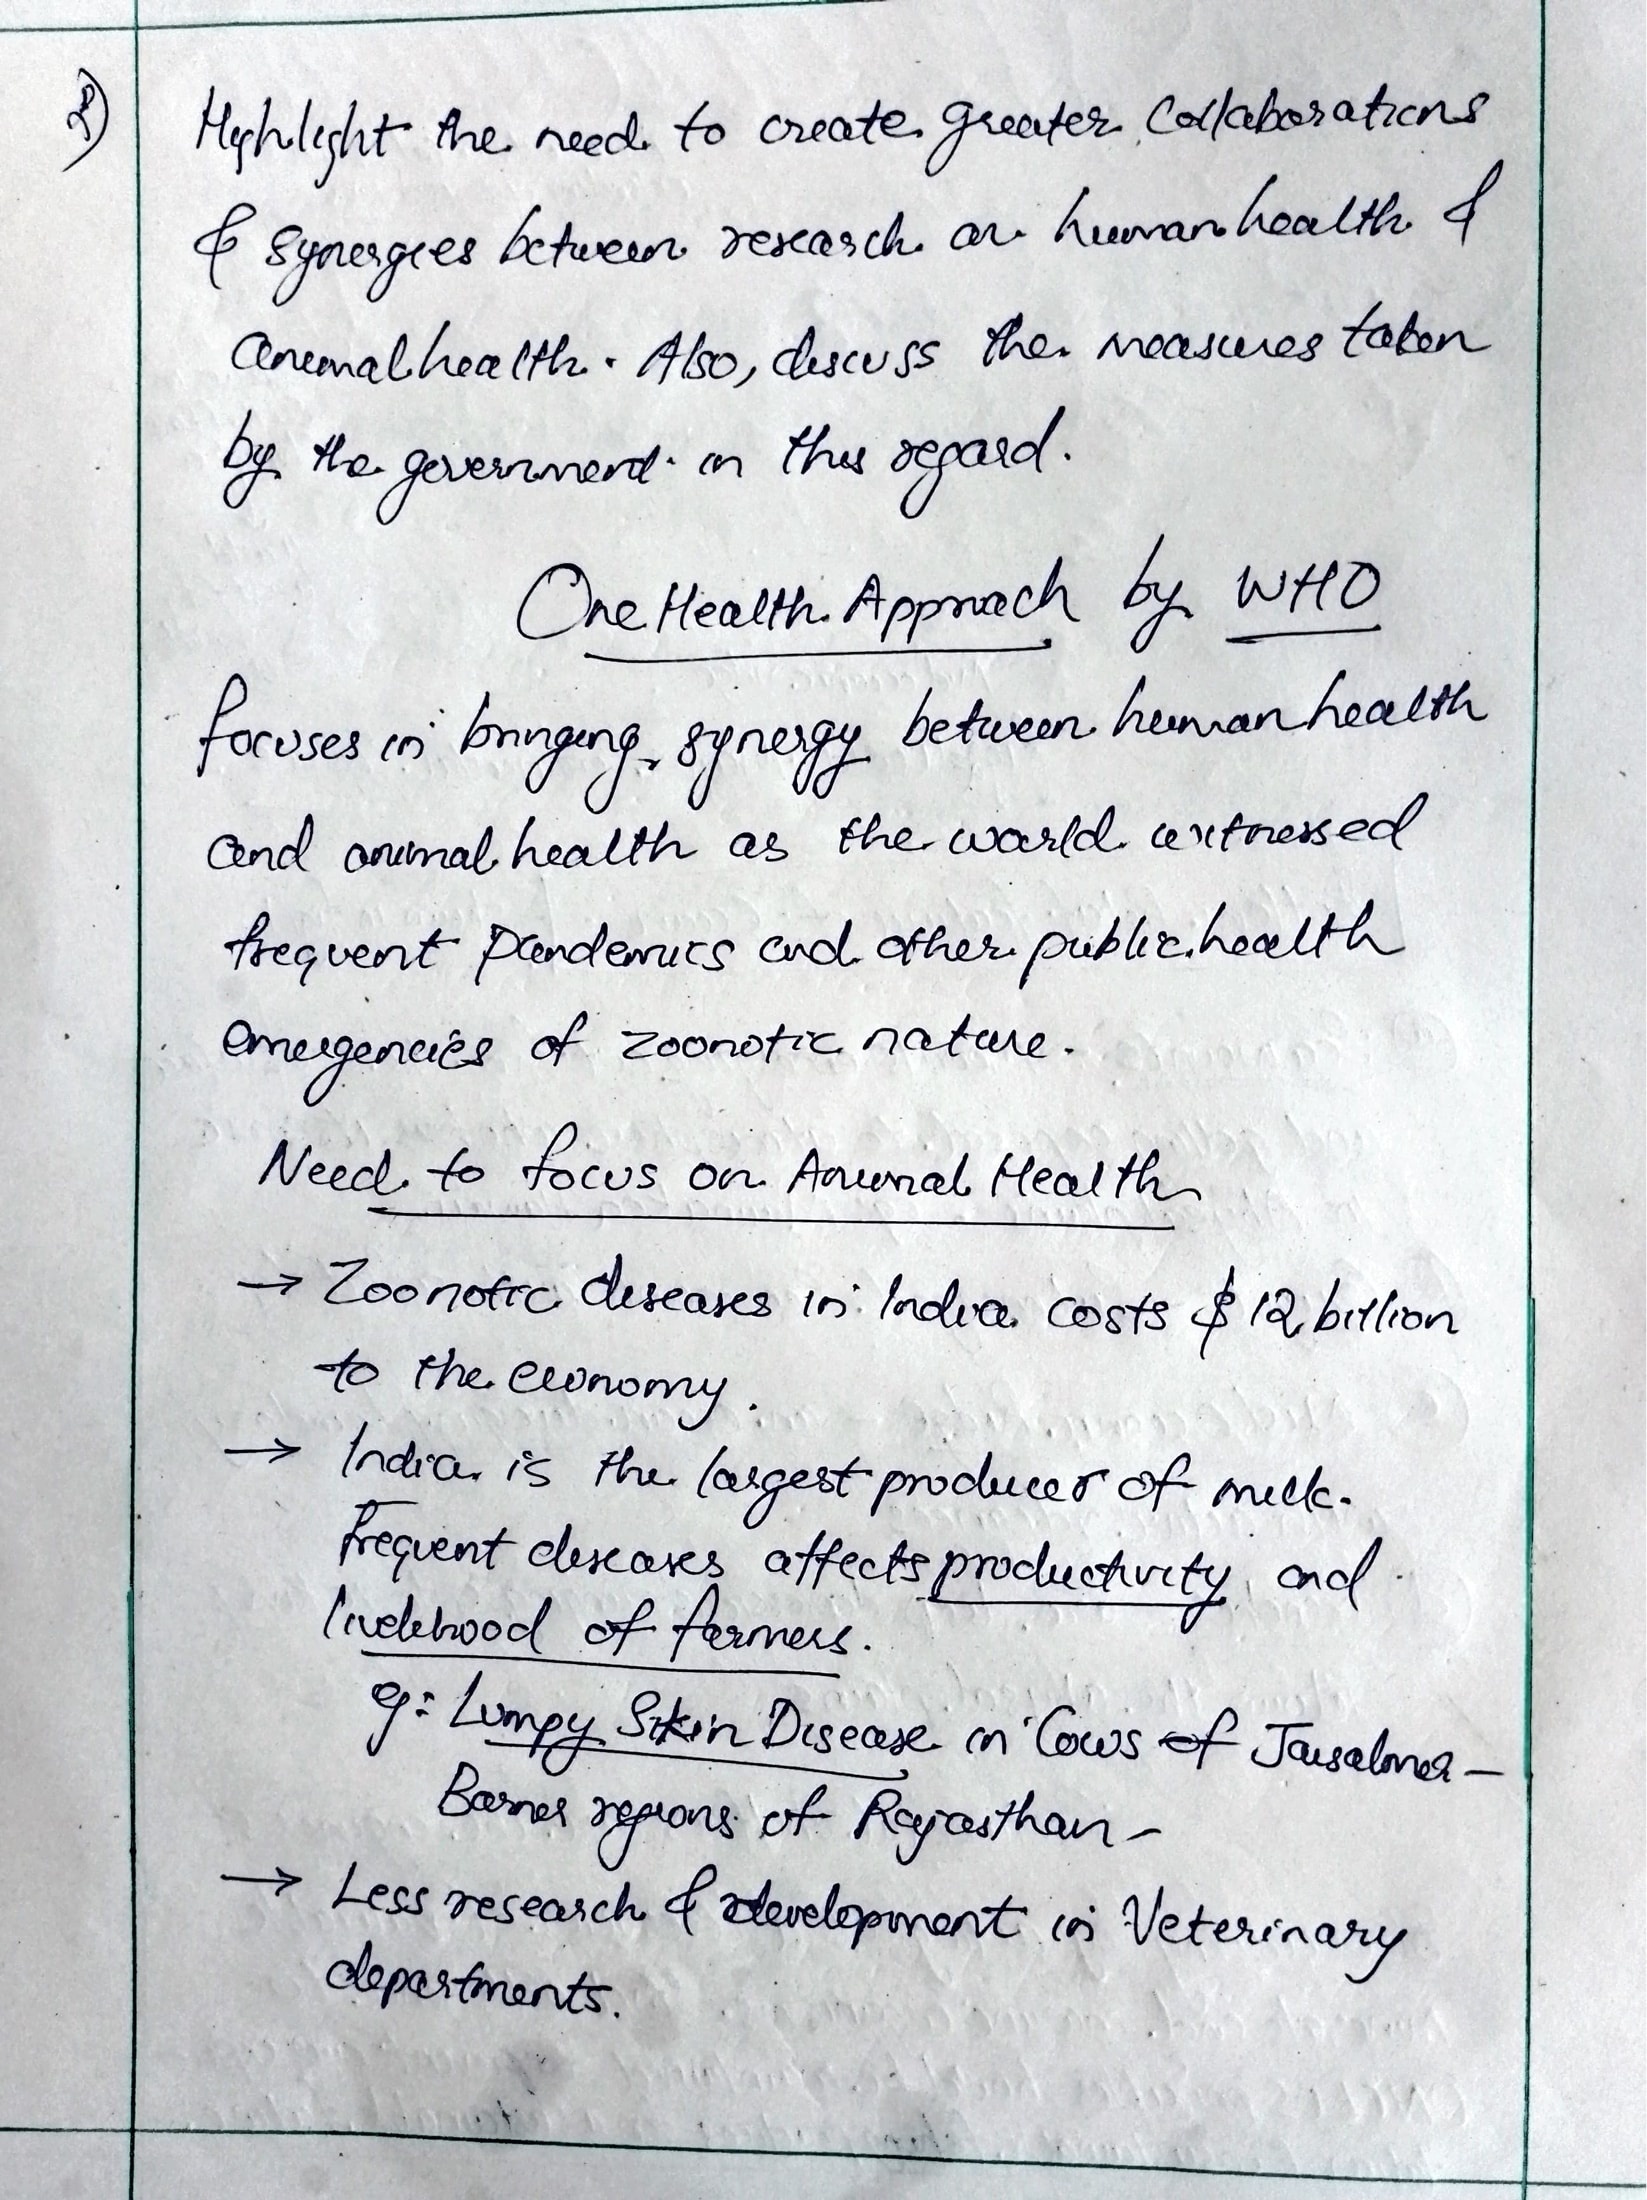 Highlight the need to create greater collaborations
& synergies between research on human health &
animal health. Also, discuss the measures taken
by the government in this regard.
One Health Approach by WHO
focuses in bringing synergy between human health
and animal health as the world witnessed
frequent Pandemics and other public health
emergencies of zoonotic nature.
Need to focus on Animal Health
→ Zoonotic diseases in India costs $ 12 billion
to the economy.
→ India is the largest producer of milk.
Frequent diseases affects productivity and
livelihood of farmers.
eg: Lumpy Skin Disease in Cows of Jaisalmer –
Barmer regions of Rajasthan –
→ Less research & development in Veterinary
departments.